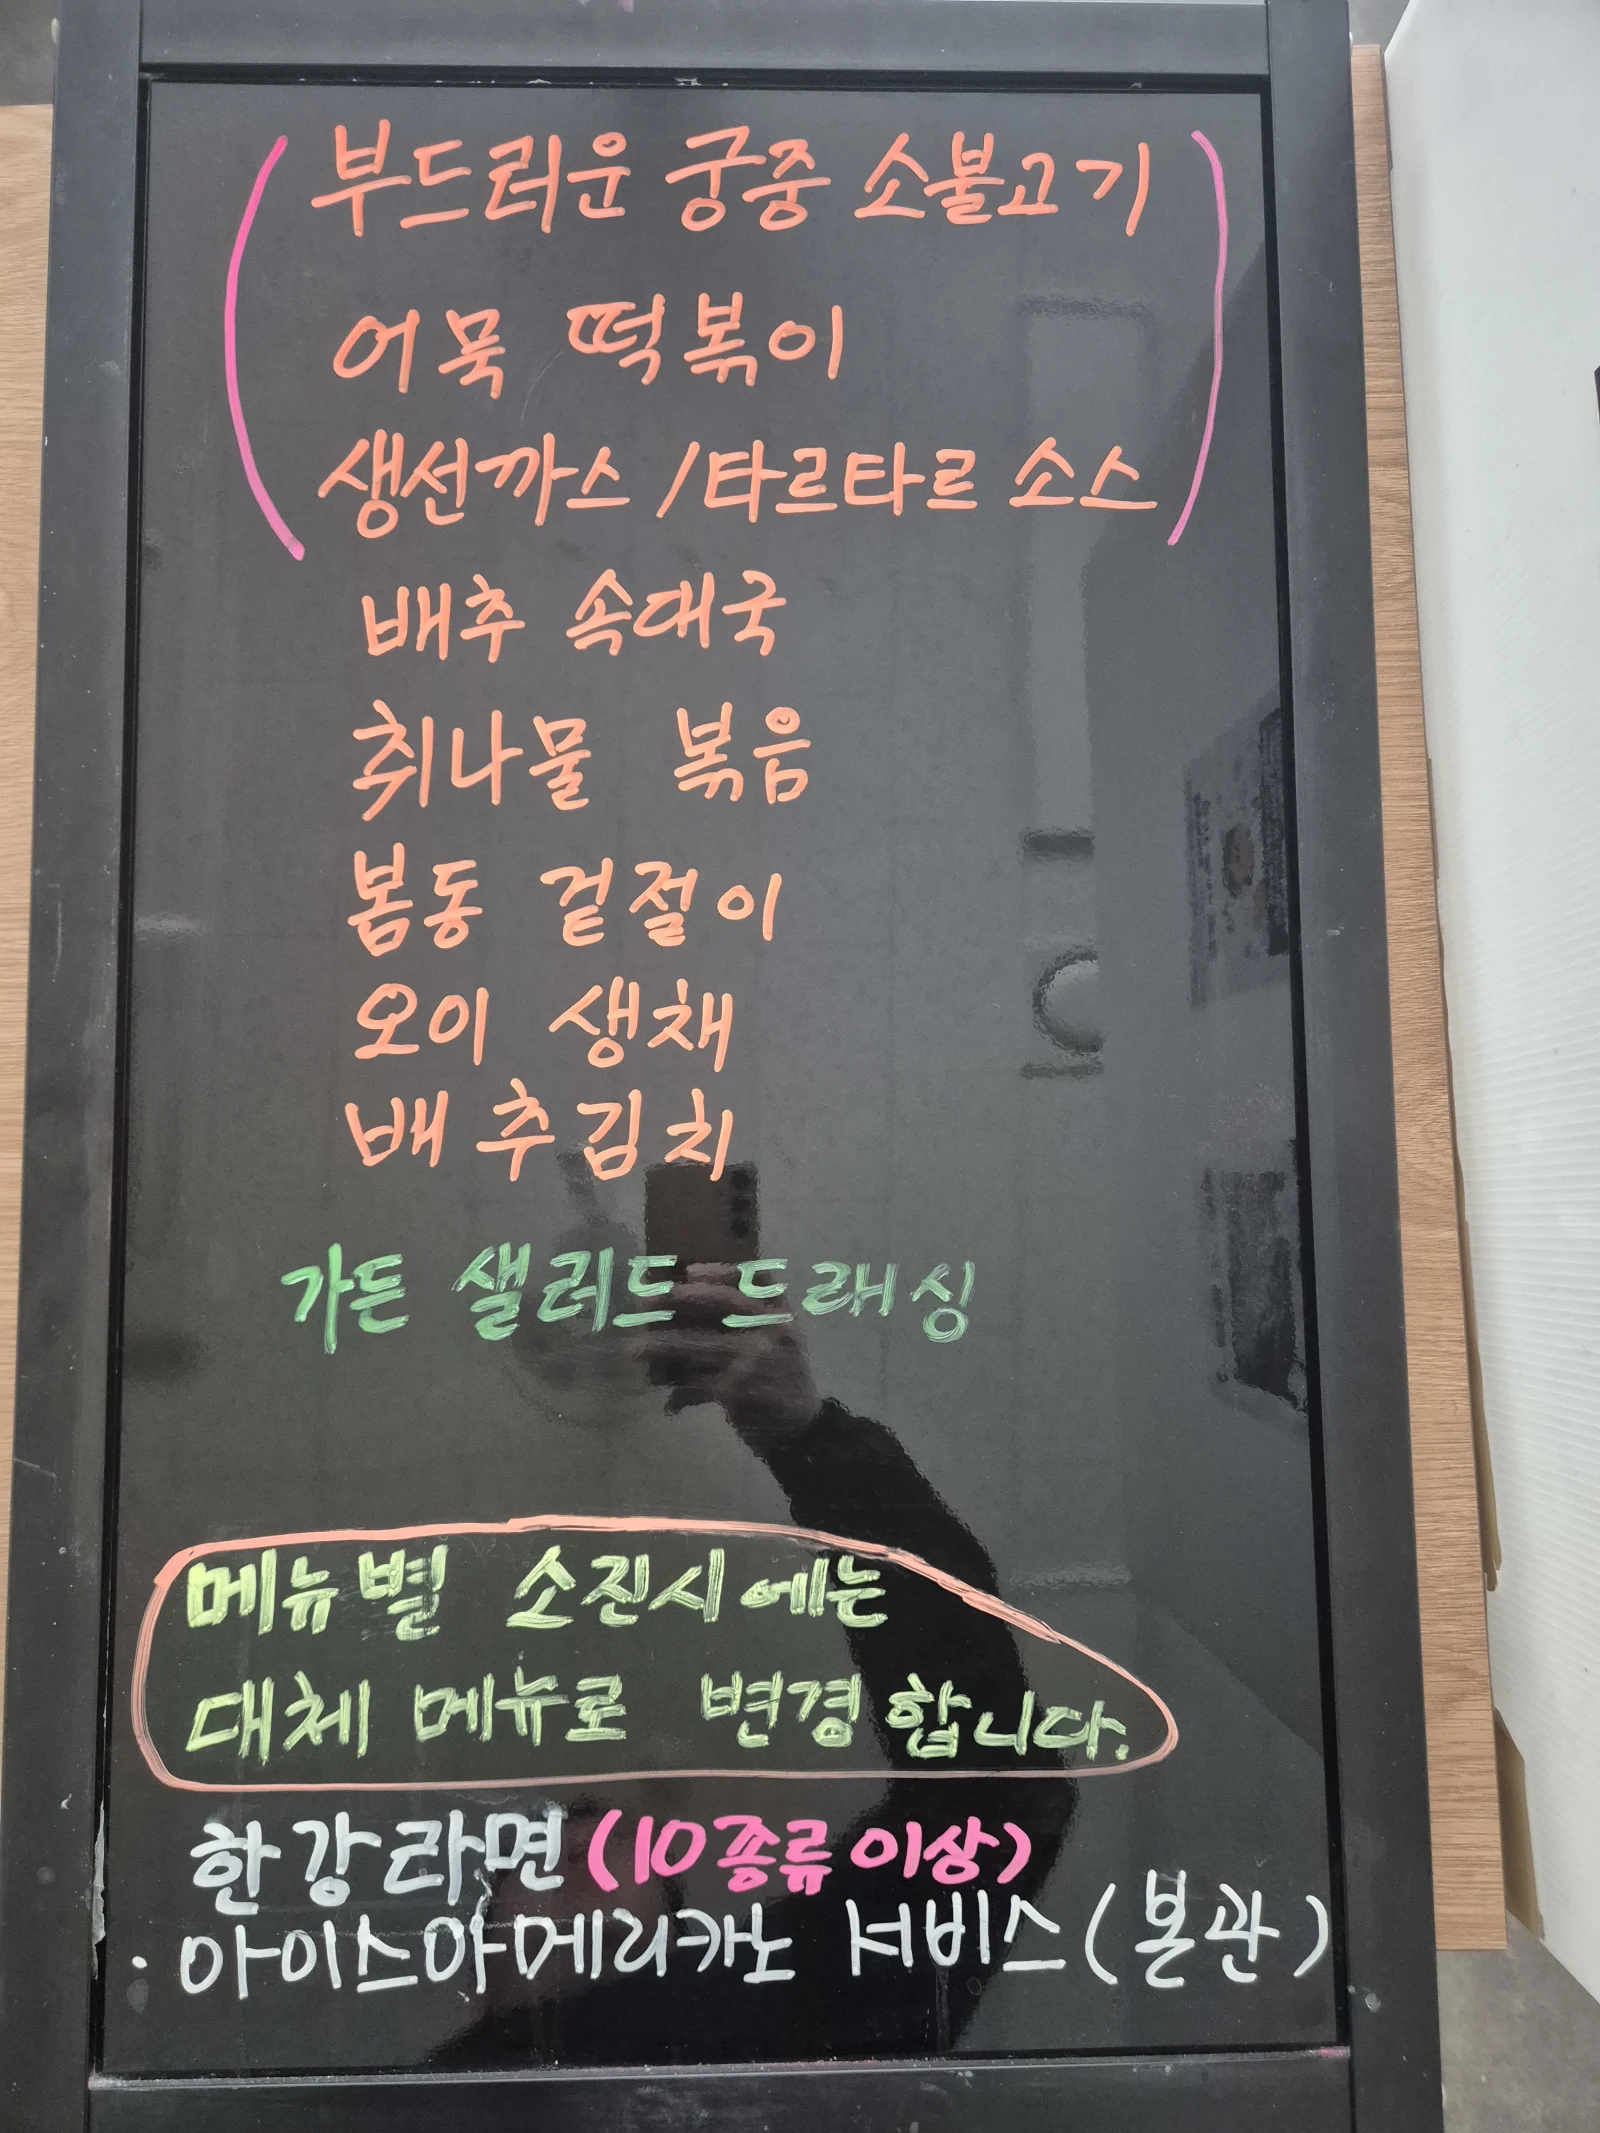 (부드러운 궁중 소불고기
어묵 떡볶이
생선까스 /타르타르 소스)
배추 속대국
취나물 볶음
봄동 겉절이
오이 생채
배추김치
가든 샐러드 드래싱
메뉴별 소진시에는
대체 메뉴로 변경합니다.
한강라면 (10종류 이상)
· 아이스아메리카노 서비스 (본관)